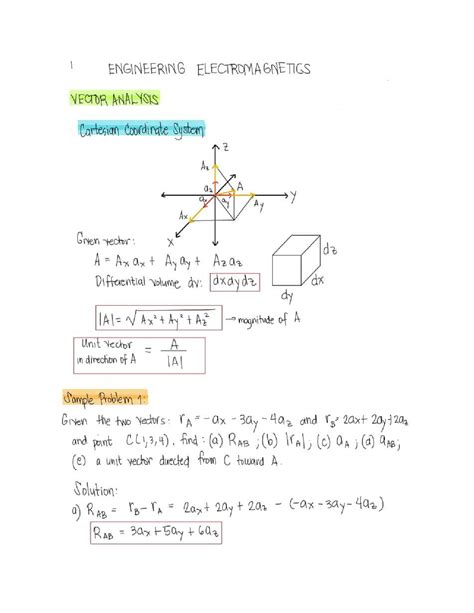 1
ENGINEERING ELECTROMAGNETICS
VECTOR ANALYSIS
Cartesian Coordinate System
Z
Az
az
A
ax
ay
Y
Ay
Ax
X
Given vector:
A = Ax ax + Ay ay + Az az
Differential volume dv: dxdydz
dz
dx
dy
|A| = √Ax² + Ay² + Az² → magnitude of A
Unit vector in direction of A = A / |A|
Sample Problem 1:
Given the two vectors: rA = -ax - 3ay - 4az and rB = 2ax + 2ay + 2az
and point C(1,3,4), find: (a) RAB; (b) |rA|; (c) aA; (d) aAB;
(e) a unit vector directed from C toward A.
Solution:
a) RAB = rB - rA = 2ax + 2ay + 2az - (-ax - 3ay - 4az)
RAB = 3ax + 5ay + 6az